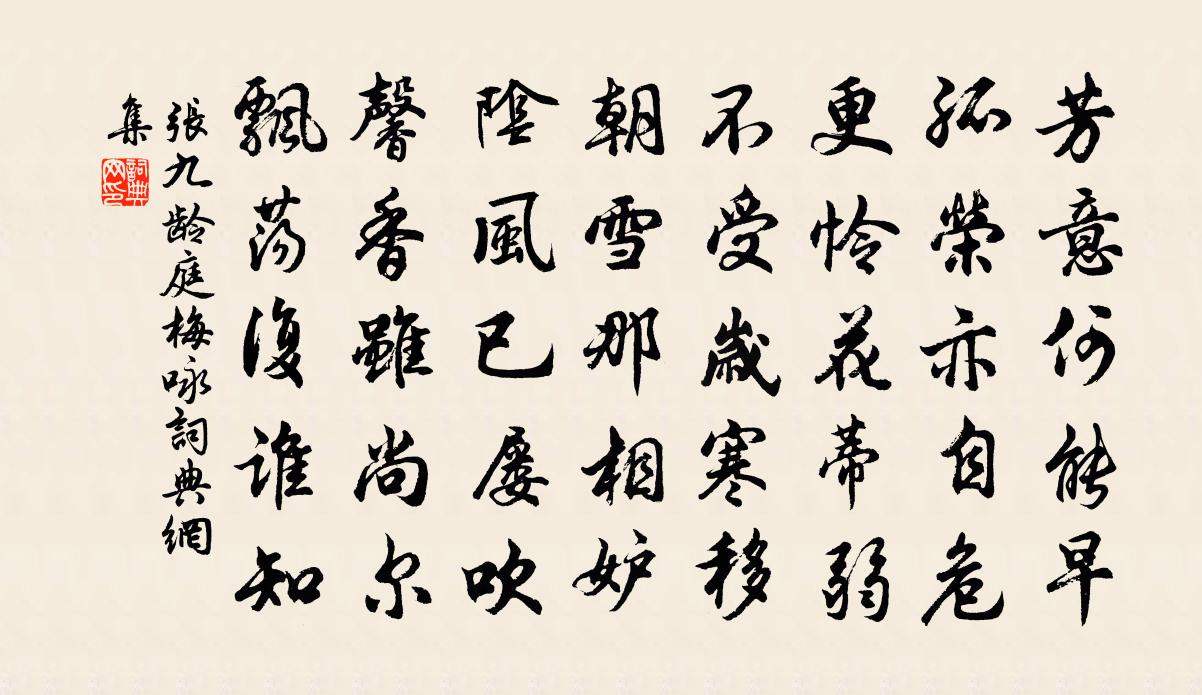 芳意何能早
孤榮亦自危
更憐花蒂弱
不受歲寒移
朝雪那相妒
陰風已屢吹
馨香雖尚尔
飄蕩復誰知
張九龄庭梅咏詞典網
集
詞典
网印